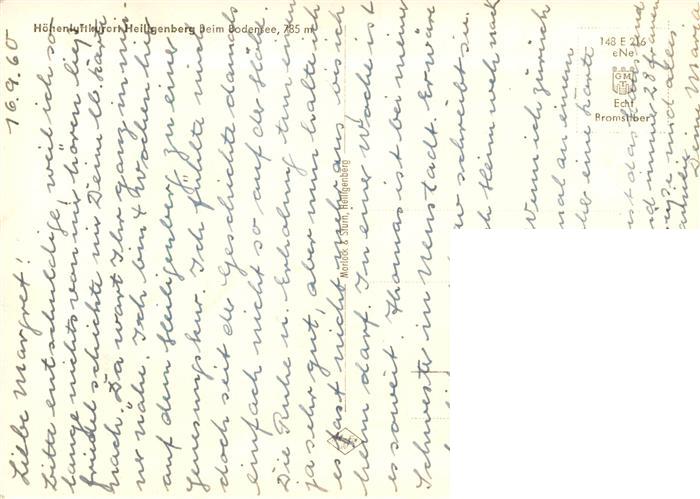 Höhenluftkurort Heiligenberg beim Bodensee, 785 m
148 E 216
eNe
GMT
Echt
Bromsilber
Morlock & Sturn, Heiligenberg
16.9.60
Liebe Margret!
Bitte entschuldige, weil ich so
lange nichts von mir hören ließ.
Friedel schickte mir Deine lb. Karte
nach. Da wart Ihr ganz in mei-
ner Nähe. Ich bin 4 Wochen hier
auf dem Heiligenberg, zu einer
Genesungskur. Ich fühlte mich
doch seit der Geschichte damals
einfach nicht so auf der Höhe.
Die Ruhe u. Erholung tun einem
ja sehr gut, aber nun halte ich
es fast nicht mehr aus, bis ich
heim darf. In einer Woche ist
es soweit. Thomas ist bei meiner
Schwester in Neustadt. Er wäre
schreibt sie.
ich Heimweh
Wenn ich zurück
mal an einem
eine Karte
ist das
und immer
und alles
Dein